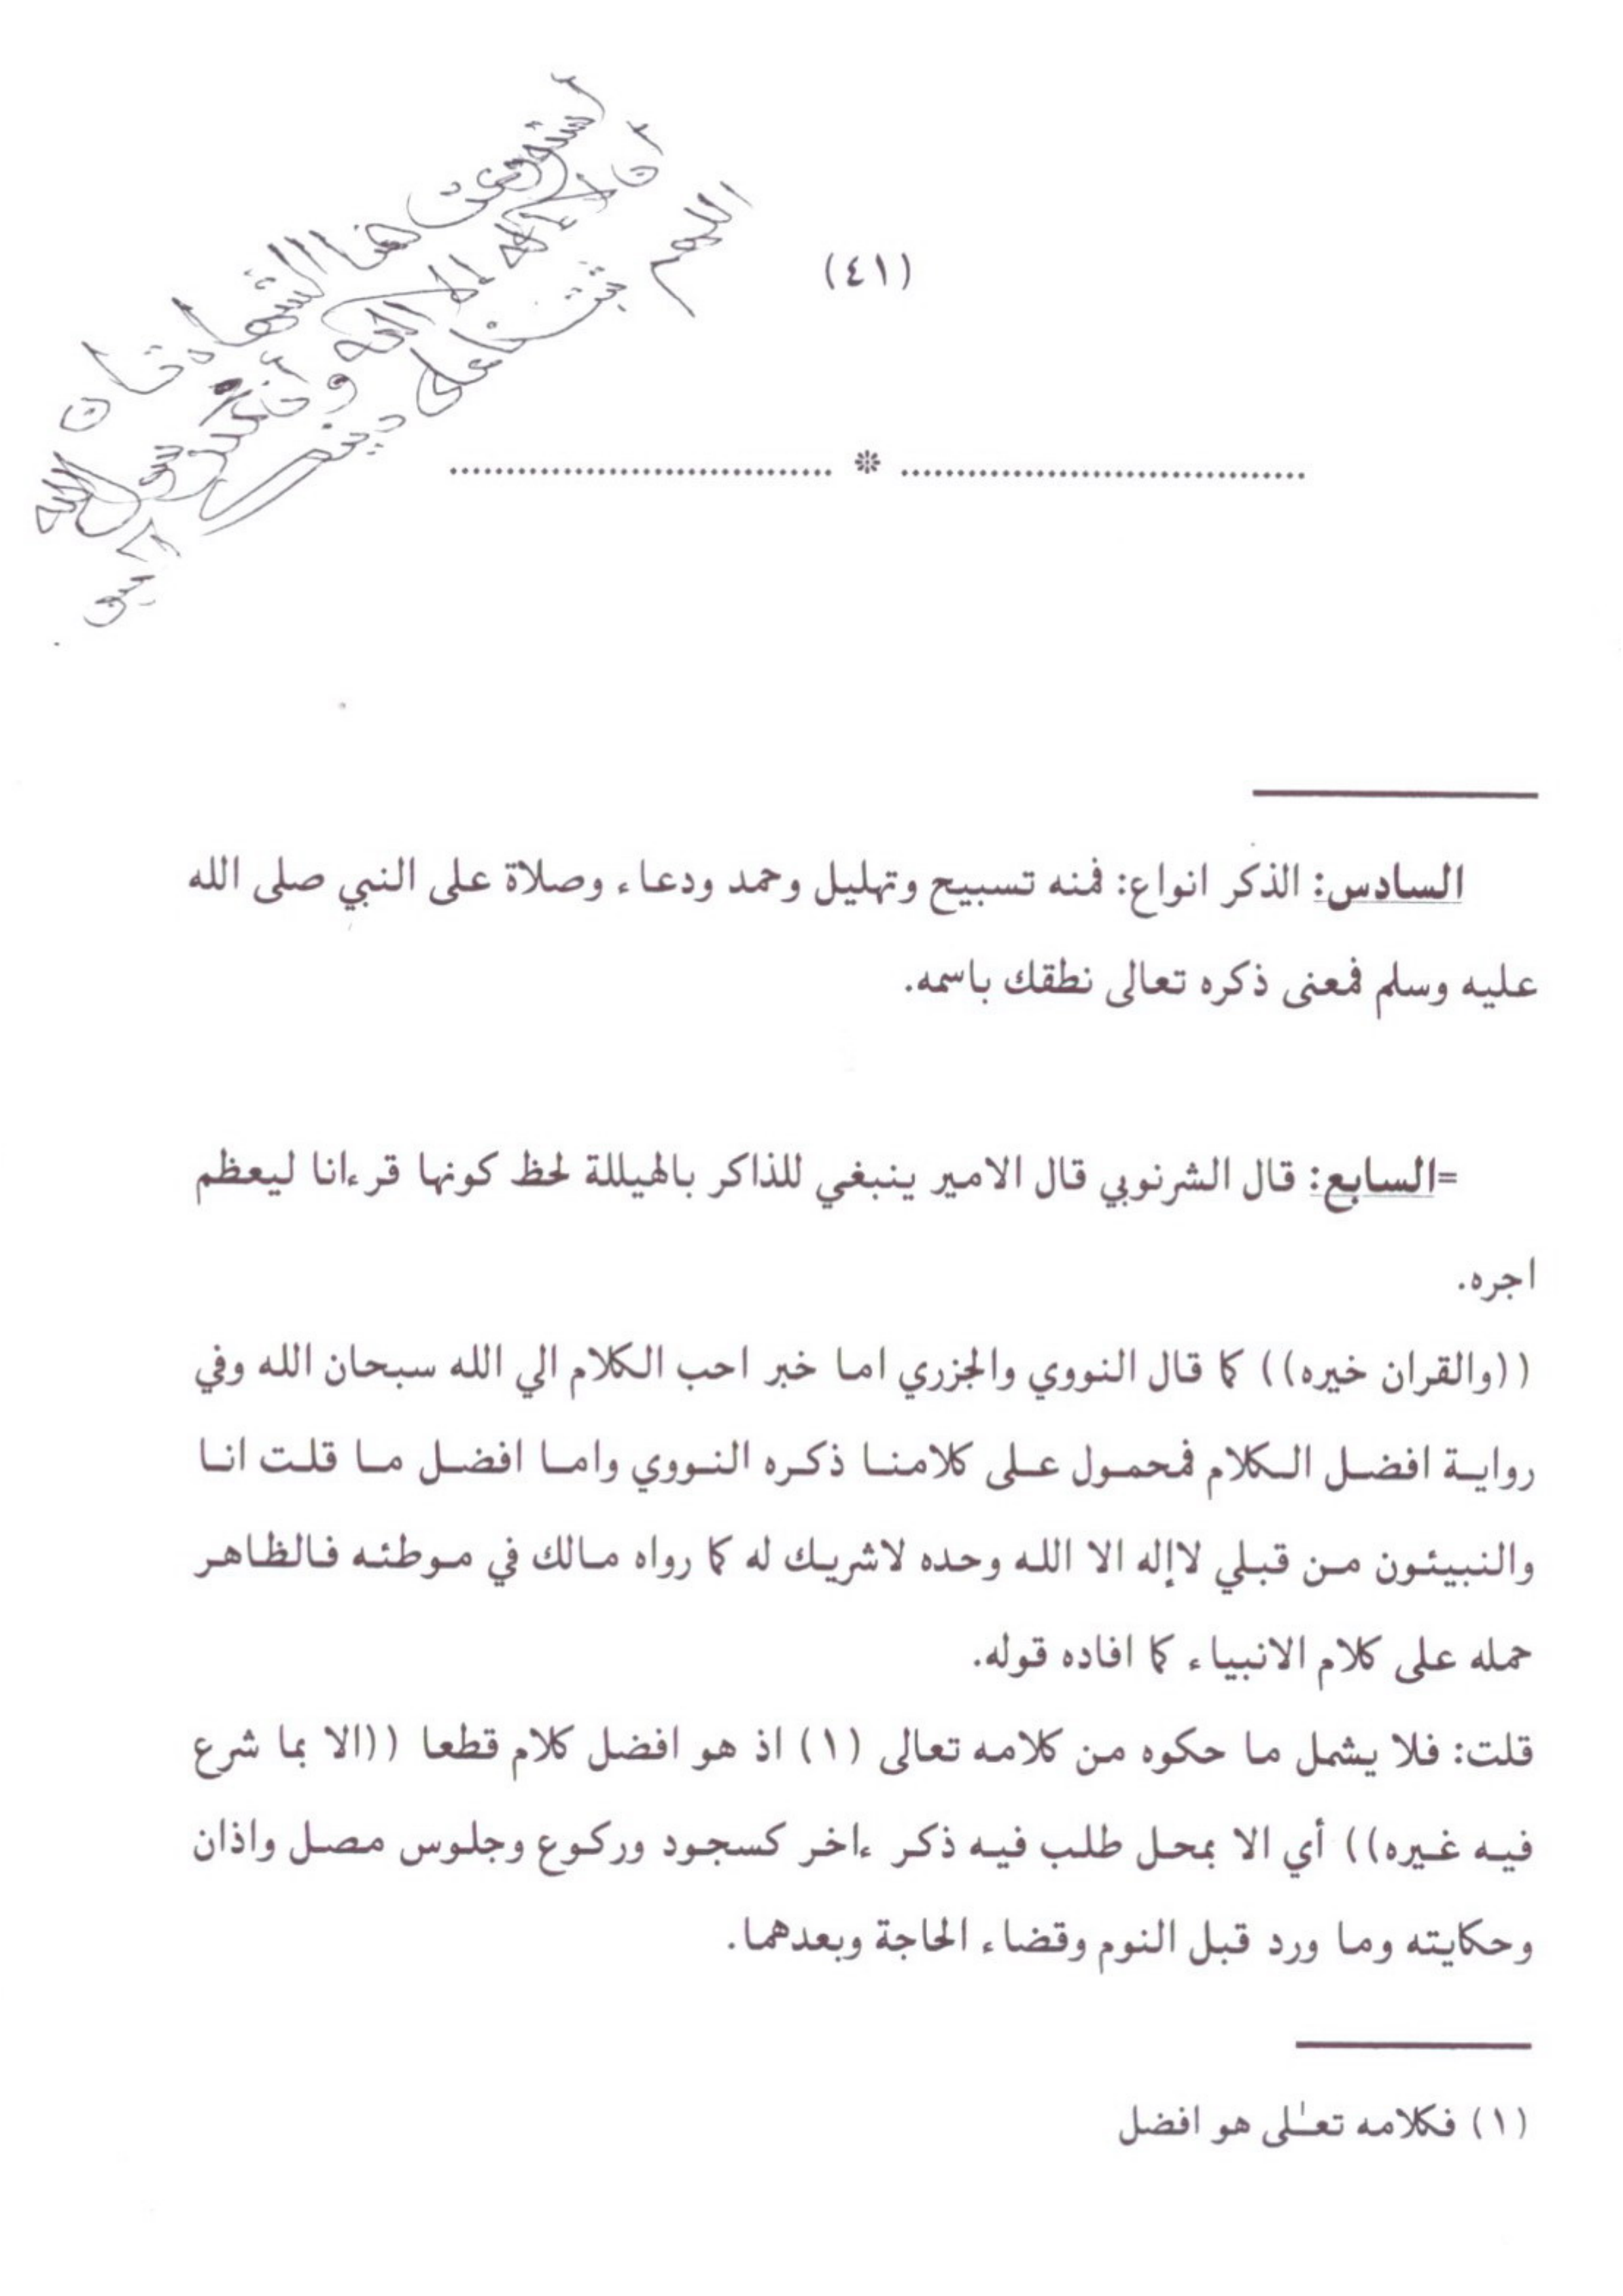 استودعت هنا الشهادتان
ان لا إله إلا الله وأن محمد رسول الله
اللهم ثبتنا على دينك
(٤١)
السادس: الذكر انواع: فمنه تسبيح وتهليل وحمد ودعاء وصلاة على النبي صلى الله
عليه وسلم فمعنى ذكره تعالى نطقك باسمه.
=السابع: قال الشرنوبي قال الامير ينبغي للذاكر بالهيللة لحظ كونها قرءانا ليعظم
اجره.
((والقران خيره)) كما قال النووي والجزري اما خبر احب الكلام الي الله سبحان الله وفي
رواية افضل الكلام فمحمول على كلامنا ذكره النووي واما افضل ما قلت انا
والنبيئون من قبلي لاإله الا الله وحده لاشريك له كما رواه مالك في موطئه فالظاهر
حمله على كلام الانبياء كما افاده قوله.
قلت: فلا يشمل ما حكوه من كلامه تعالى (١) اذ هو افضل كلام قطعا ((الا بما شرع
فيه غيره)) أي الا بمحل طلب فيه ذكر ءاخر كسجود وركوع وجلوس مصل واذان
وحكايته وما ورد قبل النوم وقضاء الحاجة وبعدهما.
(١) فكلامه تعلى هو افضل